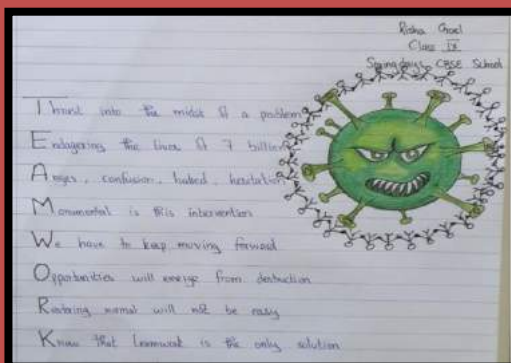 Risha Goel
Class IX
Springdays CBSE School
Thrust into the midst of a problem
Endagering the lives of 7 billion
Anger, confusion, hatred, hesitation
Monumental is this intervention
We have to keep moving forward
Opportunities will emerge from destruction
Restoring normal will not be easy
Know that teamwork is the only solution